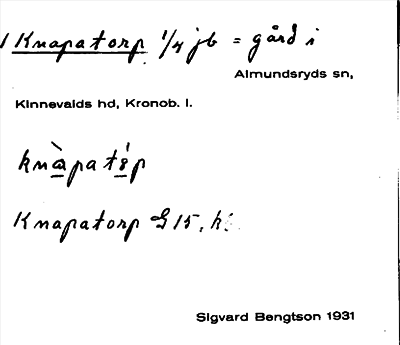 1 Knapatorp 1/4 jb = gård i
Almundsryds sn,
Kinnevalds hd, Kronob. l.
knàpató̱p
Knapatorp G 15,
Sigvard Bengtson 1931